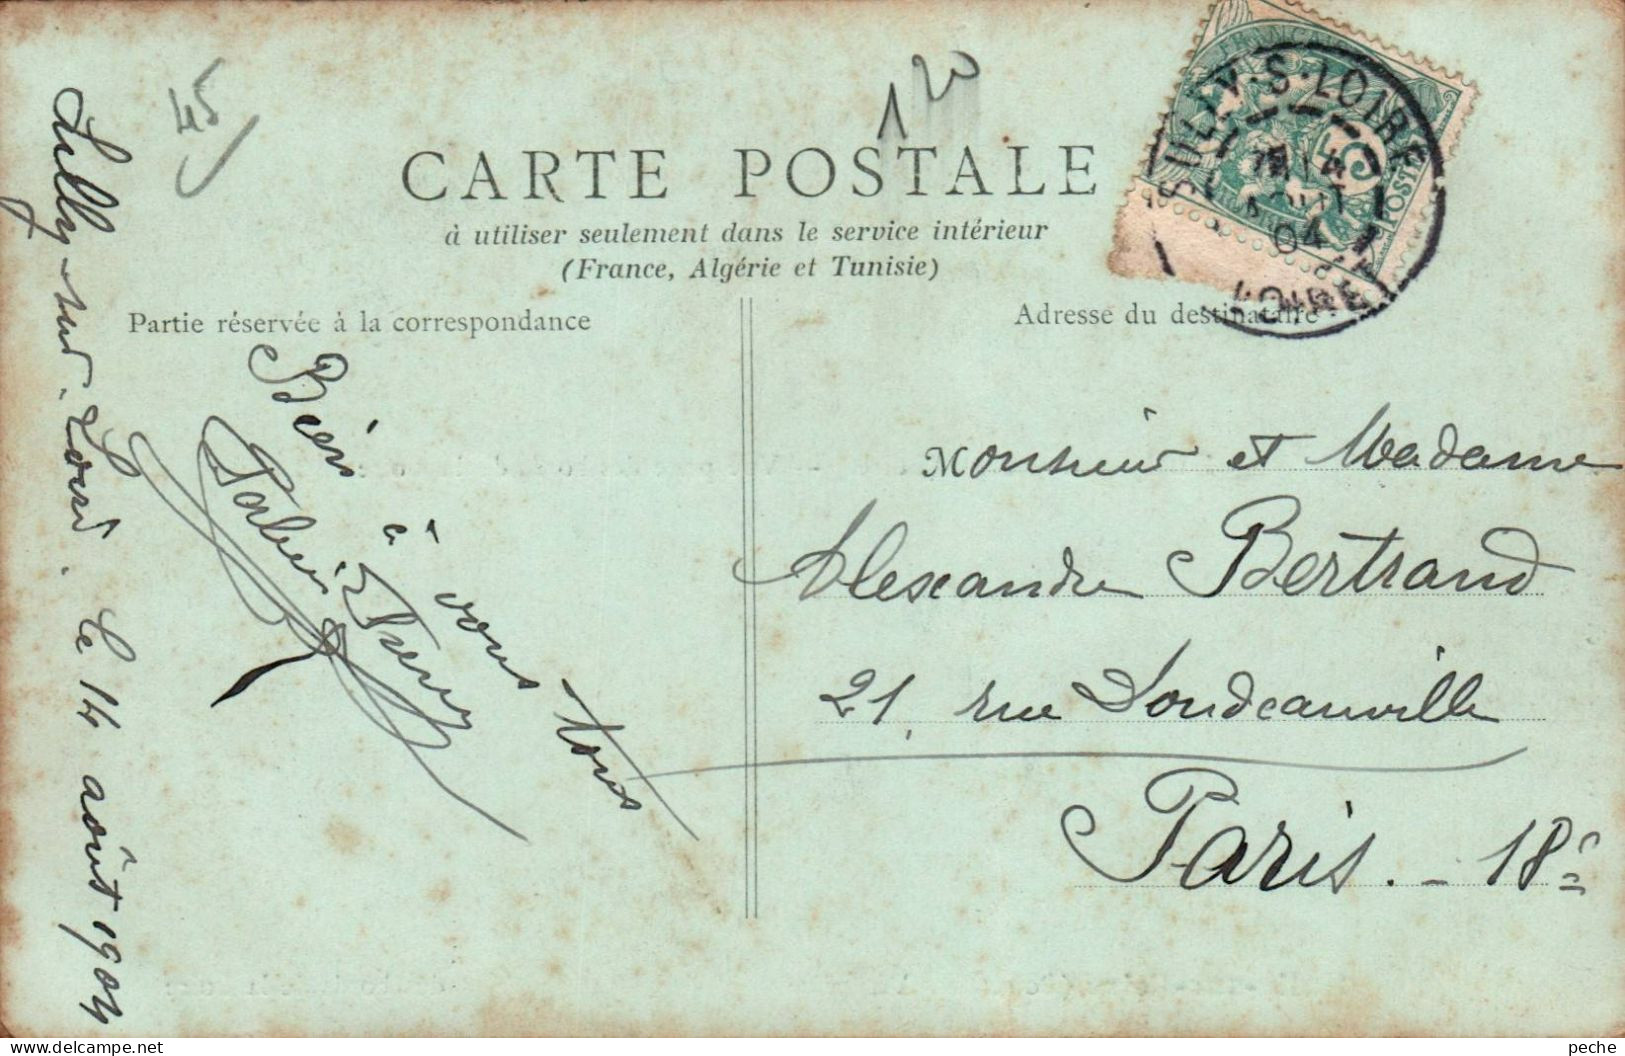 45
1 20
CARTE POSTALE
à utiliser seulement dans le service intérieur
(France, Algérie et Tunisie)
SULLY-S-LOIRE
14
04
LOIRET
FRANÇAISE
5
POSTES
Partie réservée à la correspondance
Adresse du destinataire
Sully-sur-Loire. Le 14 août 1904
Bien à vous tous
Monsieur et Madame
Alexandre Bertrand
21, rue Doudeauville
Paris. - 18e
peche